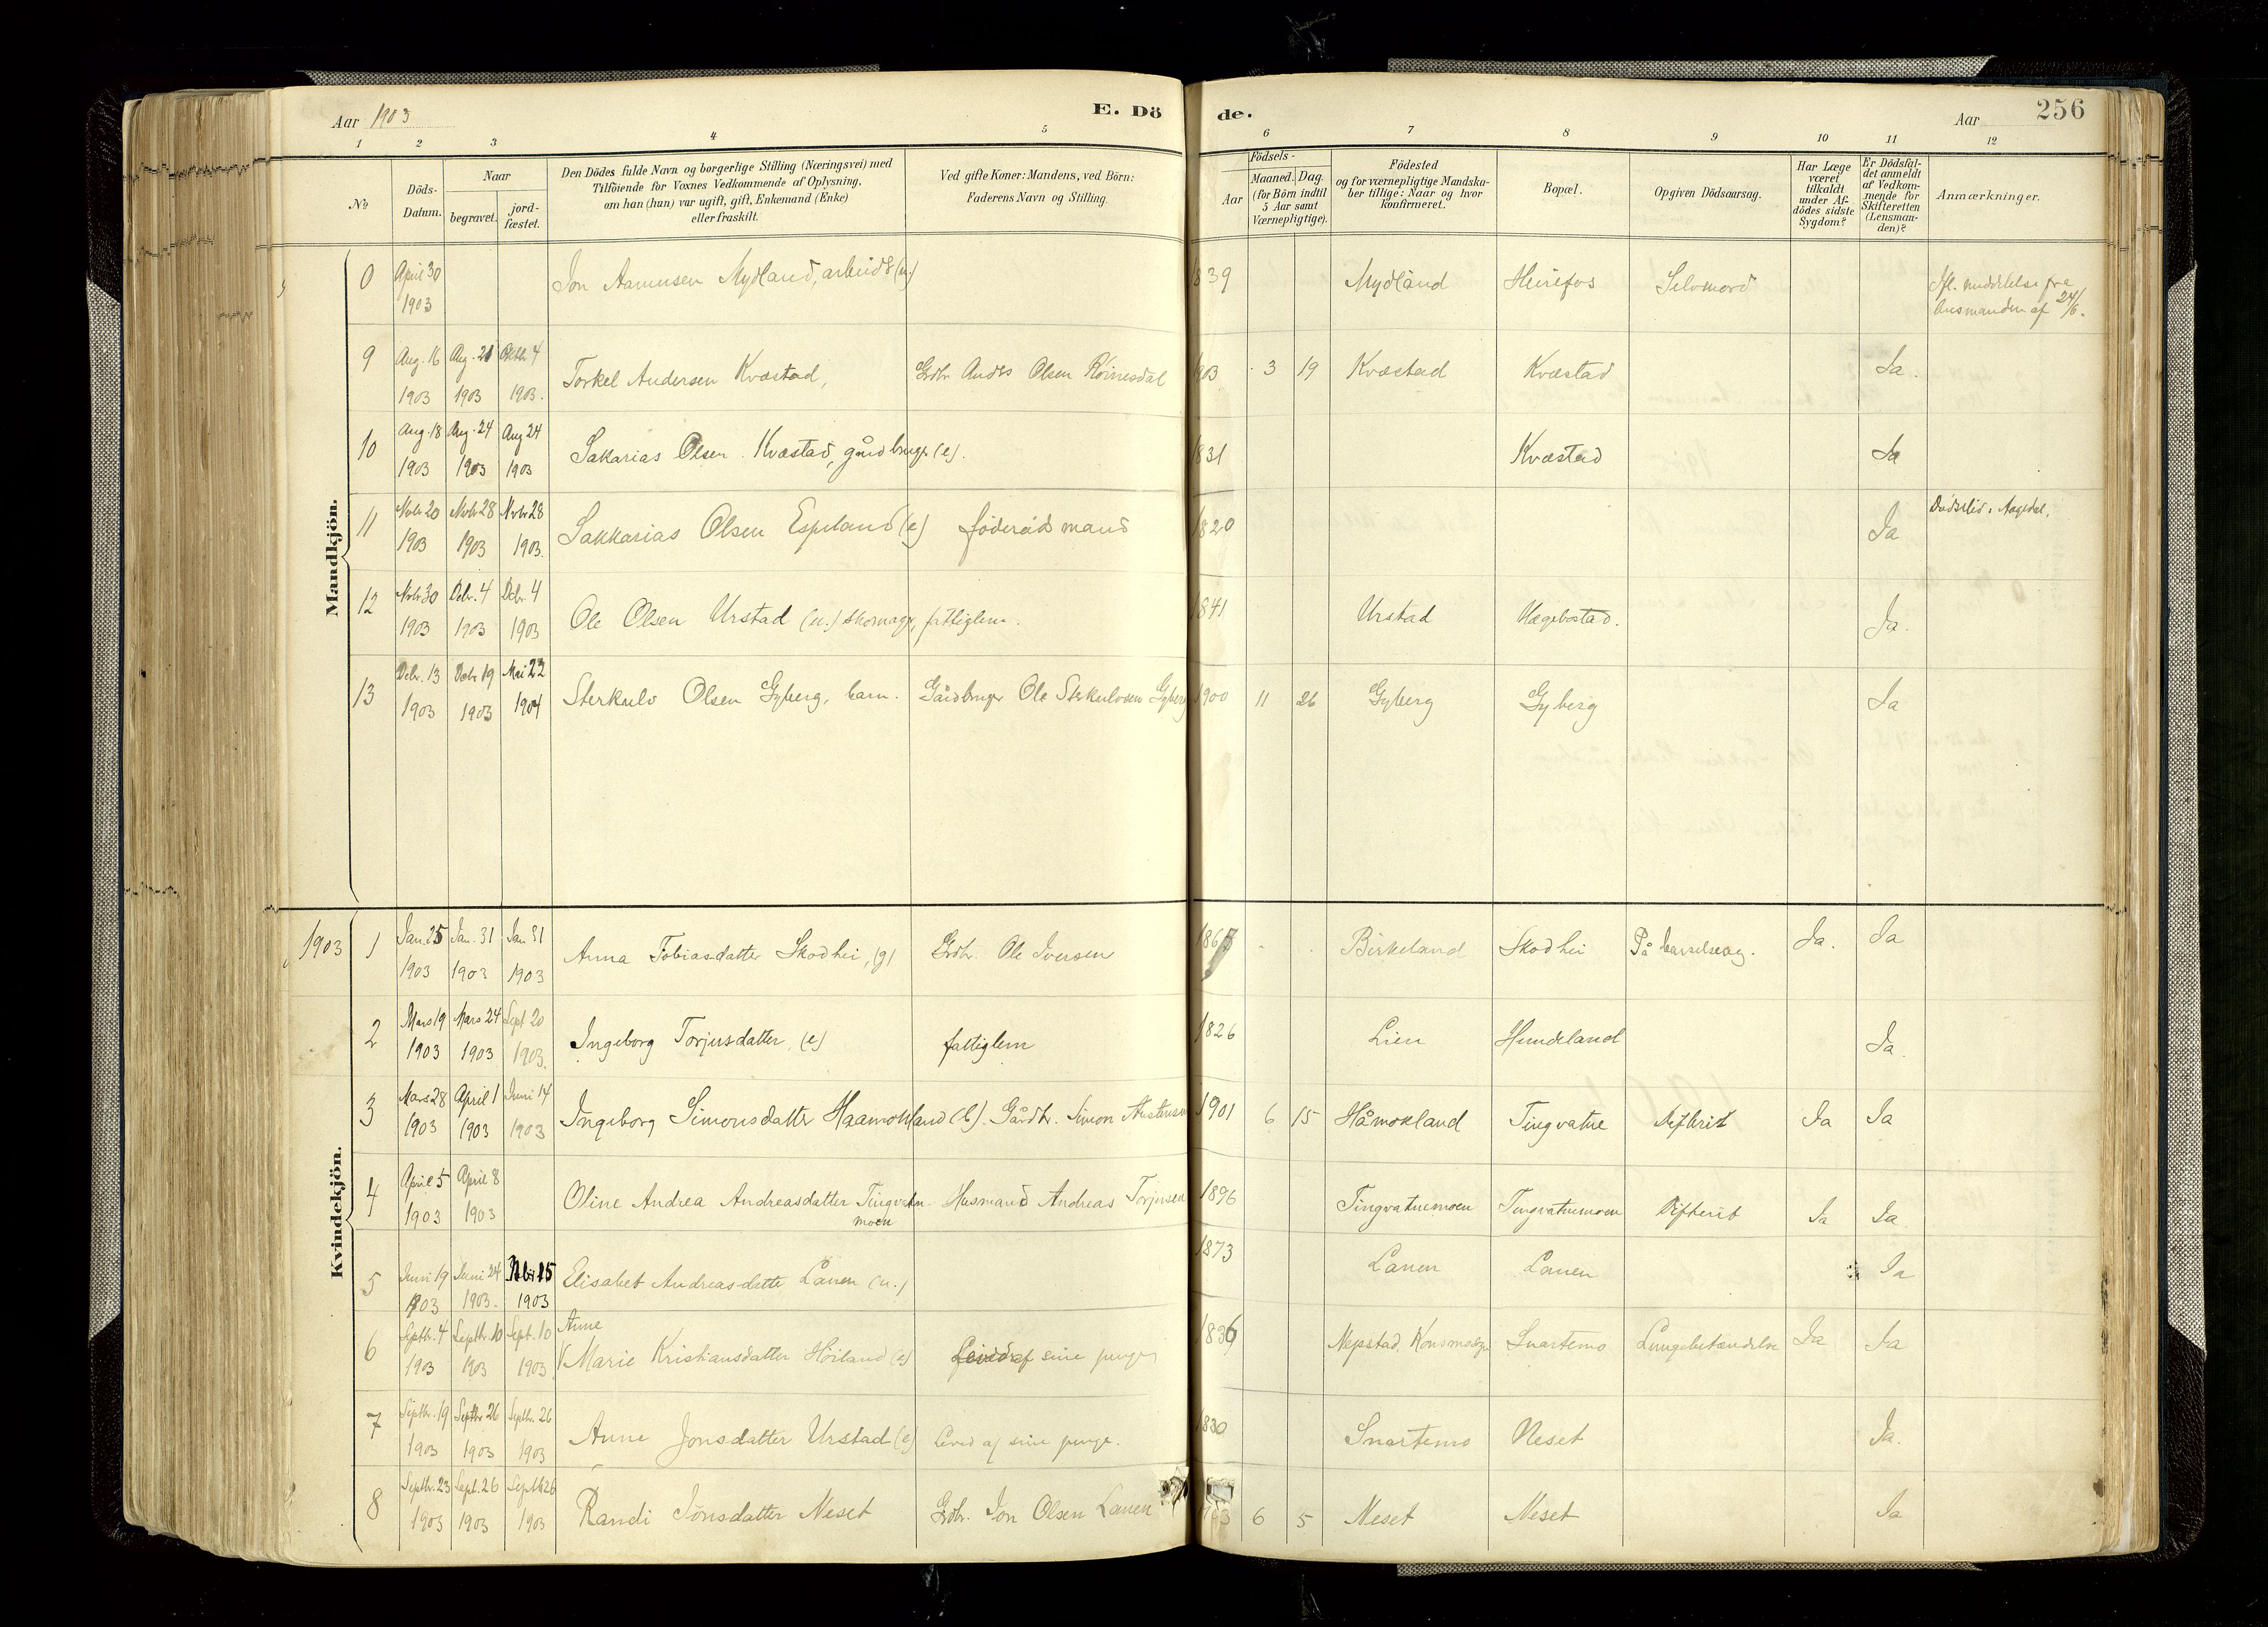 Aar 1903
E. Dö
de.
Aar
256
1 2 3 4 5 6 7 8 9 10 11 12
No
Döds-Datum.
Naar
begravet.
jord-fæstet.
Den Dödes fulde Navn og borgerlige Stilling (Næringsvei) med
Tilföiende for Voxnes Vedkommende af Oplysning,
om han (hun) var ugift, gift, Enkemand (Enke)
eller fraskilt.
Ved gifte Koner: Mandens, ved Börn:
Faderens Navn og Stilling.
Födsels-
Aar
Maaned. Dag.
(for Börn indtil
5 Aar samt
Værnepligtige).
Födested
og for værnepligtige Mandska-
ber tillige: Naar og hvor
konfirmeret.
Bopæl.
Opgiven Dödsaarsag.
Har Læge
været
tilkaldt
under Af-
dödes sidste
Sygdom?
Er Dödsfal-
det anmeldt
af Vedkom-
mende for
Skifteretten
(Lensman-
den)?
Anmærkninger.
Mandkjön.
0 April 30 1903 Jon Mydland, (u.) 1839 Mydland Heirefos Selvmord
24/6.
9 Aug. 16 1903 Aug. 21 1903 Oktb. 4 1903. Torkel Andersen Kvæstad, Grdbr. Olsen 1903 3 19 Kvæstad Kvæstad Ja.
10 Aug. 18 1903 Aug. 24 1903 Aug 24 1903 Sakarias Olsen Kvæstad, gårdbruger (e). 1831 Kvæstad Ja
11 Novbr 20 1903 Novbr 28 1903 Novbr 28 1903. Sakkarias Olsen Espeland (e) föderåds mand 1820 Ja
12 Novbr 30 1903 Debr. 4 1903 Debr. 4 1903 Ole Olsen Urstad (u.) skomager, fattiglem. 1841 Urstad Hægebostad. Ja.
13 Debr. 13 1903 Debr 19 1903 Mai 22 1904 Sterkulv Olsen Gyberg, barn. Gårdbruger Ole Sterkulvsen Gyberg 1900 11 26 Gyberg Gyberg Ja
Kvindekjön.
1903 1 Jan. 25 1903 Jan. 31 1903 Jan 31 1903 Anna Tobiasdatter Skodhei, (g) Grdbr. Ole Iversen Birkeland Skodhei På barselseng. Ja. Ja
2 Mars 19 1903 Mars 24 1903 Sept 20 1903. Ingeborg Torjusdatter, (e) fattiglem 1826 Lien Hundeland Ja.
3 Mars 28 1903 April 1 1903 Juni 14 1903 Ingeborg Simonsdatter Haamokland (b). Gårdbr. Simon 1901 6 15 Håmokland Tingvatne Difterit Ja Ja
4 April 5 1903 April 8 1903 Oline Andrea Andreasdatter Tingvatn-
moen Husmand Andreas Torjusen 1896 Tingvatnemoen Tingvatnemoen Difterit Ja Ja
5 Juni 19 1903 Juni 24 1903. 15 1903 Elisabet Andreasdatter Lauen (u.) 1873 Lauen Lauen Ja
6 Septbr. 4 1903 Septbr. 10 1903 Sept. 10 1903 Anne
Marie Kristiansdatter Höiland (e) Leved af sine penger 1836 Nepstad, Snartemo Lungebetændelse Ja Ja
7 Septbr. 19 1903 Septbr 26 1903 Septbr. 26 1903 Anne Jonsdatter Urstad (e) Leved af sine penge. 1830 Snartemo Neset Ja.
8 Septbr. 23 1903 Sept. 26 1903 Septb 26 1903 Randi Jonsdatter Neset Grdbr. Jon Olsen Lauen 1903 6 5 Neset Neset Ja